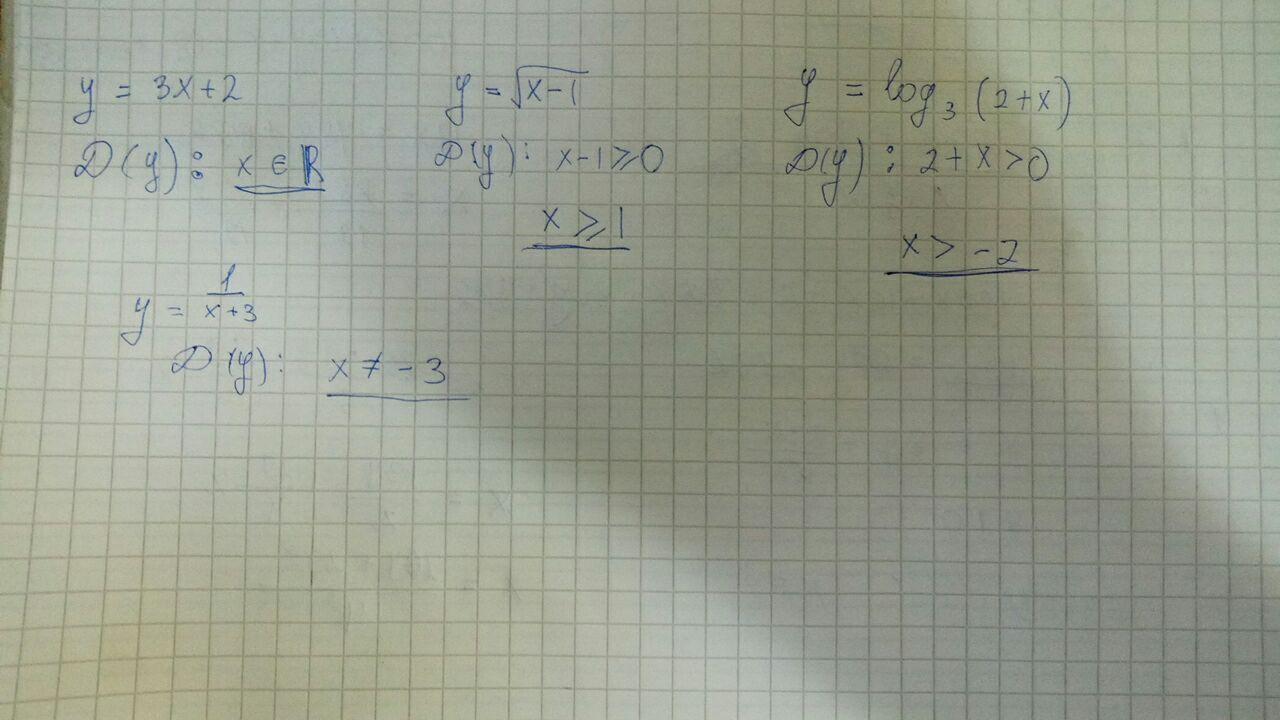 y = 3x+2
D(y): x ∈ R
y = √x-1
D(y): x-1 ≥ 0
x ≥ 1
y = log₃ (2+x)
D(y): 2+x > 0
x > -2
y = 1/x+3
D(y): x ≠ -3